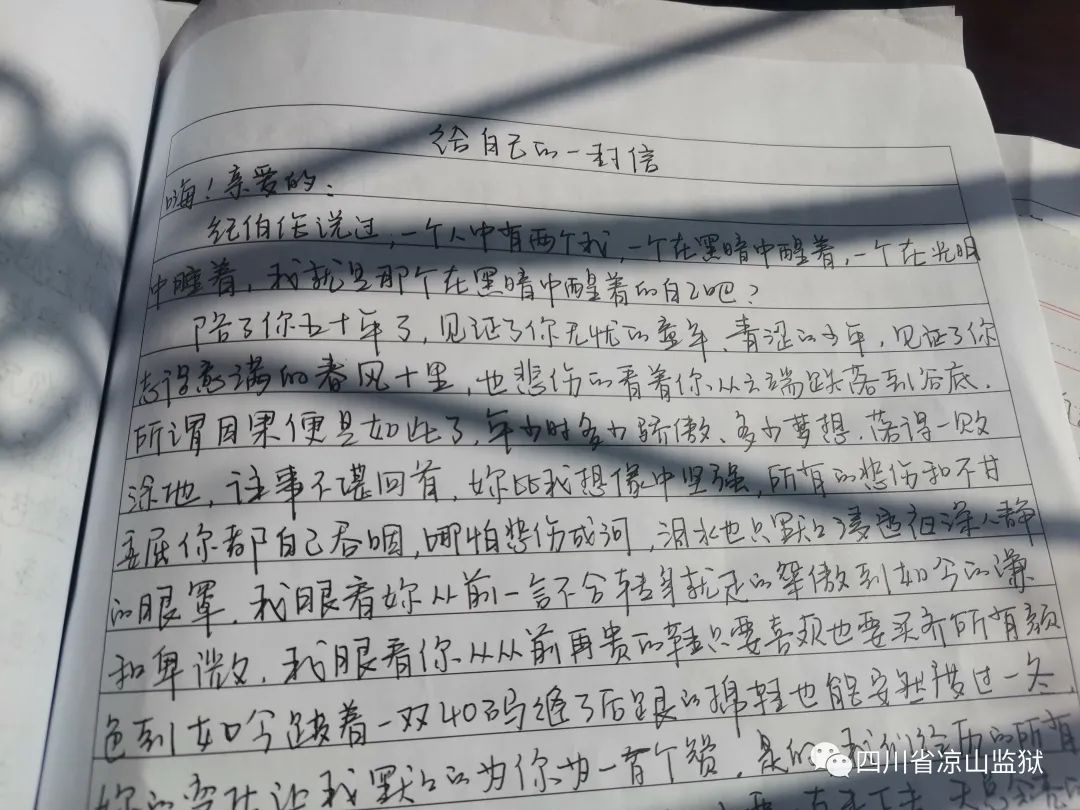 给自己的一封信
嗨！亲爱的：
纪伯伦说过，一个人中有两个我，一个在黑暗中醒着，一个在光明
中睡着，我就是那个在黑暗中醒着的自己吧？
陪了你五十年了，见证了你无忧的童年、青涩的少年，见证了你
志得意满的春风十里，也悲伤的看着你从云端跌落到谷底．
所谓因果便是如此了，年少时多少骄傲、多少梦想．落得一败
涂地，往事不堪回首，你比我想像中坚强，所有的悲伤和不甘
委屈你都自己吞咽，哪怕悲伤成河，泪水也只默默浸透夜深人静
的眼罩．我眼看你从前一言不合转身就走的桀傲到如今的谦
和卑微，我眼看你从从前再贵的鞋只要喜欢也要买齐所有颜
色到如今踏着一双40码缝了后跟的棉鞋也能安然度过一冬，
你的变化让我默默的为你 个赞，是的，我们经历的所有
四川省凉山监狱